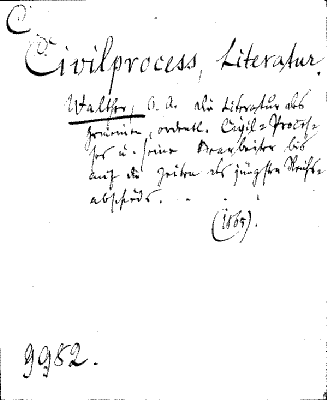 C.
Civilprocess, Literatur.
Walther, O. A. die Literatur des
gemeinen, ordentl. Civil-Proces-
ses u. seine Bearbeiter bis
auf die Zeiten des jüngsten Reichs-
abschieds. . .
(1865).
9982.